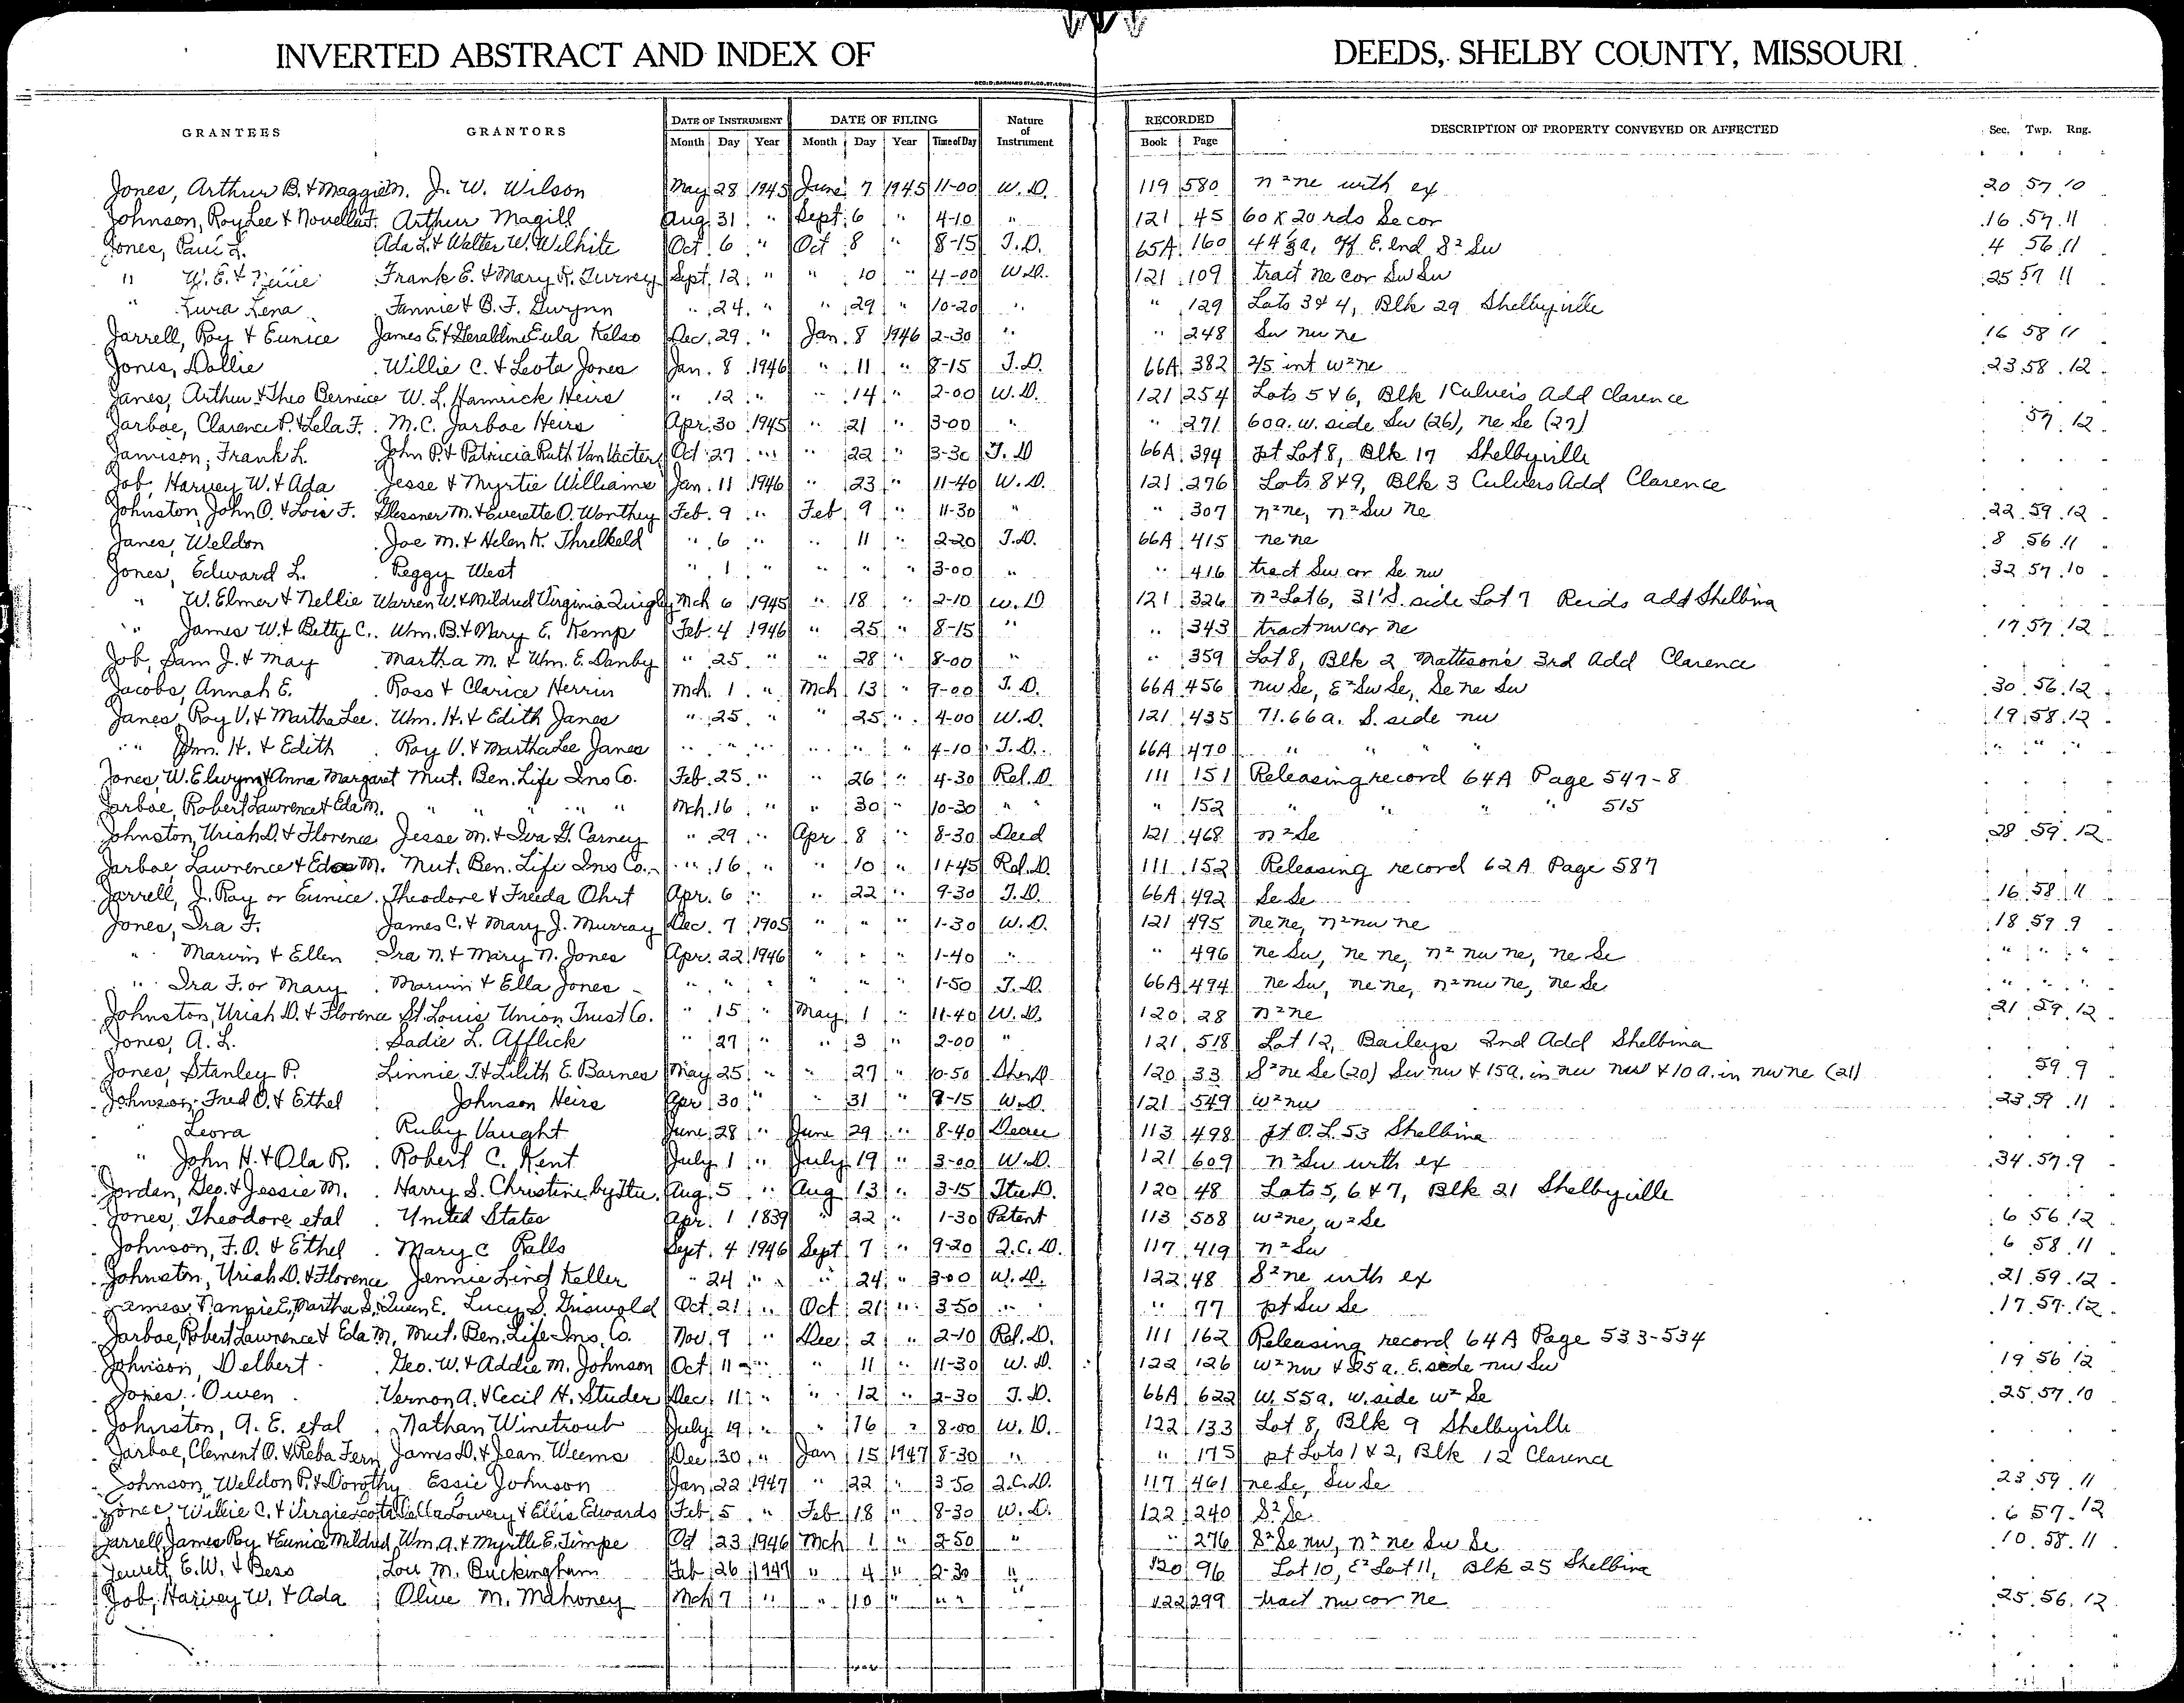 INVERTED ABSTRACT AND INDEX OF DEEDS, SHELBY COUNTY, MISSOURI
GRANTEES GRANTORS DATE OF INSTRUMENT DATE OF FILING Nature of Instrument RECORDED DESCRIPTION OF PROPERTY CONVEYED OR AFFECTED Sec. Twp. Rng.
Month Day Year Month Day Year Time of Day Book Page
Jones, Arthur B. & Maggie M. J. W. Wilson May 28 1945 June 7 1945 11-00 W.D. 119 580 n²ne with ex 20 57 10
Johnson, Roy Lee & Novella F. Arthur Magill Aug 31 " Sept 6 " 4-10 " 121 45 60 x 20 rds Se cor 16 57 11
Jones, Paul L. Ada L. & Walter W. Wilhite Oct 6 " Oct 8 " 8-15 T.D. 65A 160 44 a. off E. end S² Sw 4 56 11
" W. E. & Frank E. & Mary R. Turney Sept 12 " " 10 " 4-00 W.D. 121 109 tract ne cor Sw Sw 25 57 11
" Lura Lena Fannie & B. F. Gwynn " 24 " " 29 " 10-20 " " 129 Lots 3 & 4, Blk 29 Shelbyville
Jarrell, Roy & Eunice James E. & Geraldine Eula Kelso Dec. 29 " Jan. 8 1946 2-30 " " 248 Sw nw ne 16 58 11
Jones, Dollie Willie C. & Leota Jones Jan. 8 1946 " 11 " 8-15 T.D. 66A 382 2/5 int w²ne 23 58 12
Janes, Arthur & Theo Berniece W. L. Hamrick Heirs " 12 " " 14 " 2-00 W.D. 121 254 Lots 5 & 6, Blk 1 Culvers Add Clarence
Jarboe, Clarence P. & Lela F. M. C. Jarboe Heirs Apr. 30 1945 " 21 " 3-00 " " 271 60a. w. side Sw (26), ne Se (27) 57 12
Jamison, Frank L. John P. & Patricia Ruth VanVacter Oct 27 " " 22 " 3-30 T.D 66A 394 pt Lot 8, Blk 17 Shelbyville
Job, Harvey W. & Ada Jesse & Myrtie Williams Jan. 11 1946 " 23 " 11-40 W.D. 121 276 Lots 8 & 9, Blk 3 Culvers Add Clarence
Johnston, John O. & Lois F. Glessner M. & Everette O. Worthey Feb. 9 " Feb 9 " 11-30 " " 307 n²ne, n²Sw ne 22 59 12
Janes, Weldon Joe M. & Helen K. Threlkeld " 6 " " 11 " 2-20 T.D. 66A 415 ne ne 8 56 11
Jones, Edward L. Peggy West " 1 " " " " 3-00 " " 416 tract Sw cor Se nw 32 57 10
" W. Elmer & Nellie Warren W. & Mildred Virginia Quigley Mch 6 1945 " 18 " 2-10 W.D 121 326 n²Lot 6, 31' S. side Lot 7 Reids add Shelbina
" James W. & Betty C. Wm. B. & Mary E. Kemp Feb. 4 1946 " 25 " 8-15 " " 343 tract nw cor ne 17 57 12
Job, Sam J. & May Martha M. & Wm. E. Danby " 25 " " 28 " 8-00 " " 359 Lot 8, Blk 2 Matteson's 3rd Add Clarence
Jacobs, Annah E. Ross & Clarice Herrin Mch. 1 " Mch 13 " 9-00 T.D. 66A 456 nw Se, E²Sw Se, Se ne Sw 30 56 12
Janes, Roy V. & Martha Lee Wm. H. & Edith Janes " 25 " " 25 " 4-00 W.D. 121 435 71.66a. S. side nw 19 58 12
" Wm. H. & Edith Roy V. & Martha Lee Janes " " " " " " 4-10 T.D. 66A 470 " " " " " " "
Jones, W. Elwyn & Anna Margaret Mut. Ben. Life Ins Co. Feb. 25 " " 26 " 4-30 Rel.D. 111 151 Releasing record 64A Page 547-8
Jarboe, Robert Lawrence & Eda M. " " " " " Mch. 16 " " 30 " 10-30 " " " 152 " " " " 515
Johnston, Uriah D. & Florence Jesse M. & Iva G. Carney " 29 " Apr 8 " 8-30 Deed 121 468 n²Se 28 59 12
Jarboe, Lawrence & Eda M. Mut. Ben. Life Ins Co. " 16 " " 10 " 11-45 Rel.D. 111 152 Releasing record 62A Page 587
Jarrell, J. Ray or Eunice Theodore & Freeda Ohrt Apr. 6 " " 22 " 9-30 T.D. 66A 492 Se Se 16 58 11
Jones, Ira F. James C. & Mary J. Murray Dec. 7 1905 " " " 1-30 W.D. 121 495 ne ne, n²nw ne 18 59 9
" Marvin & Ellen Ira N. & Mary N. Jones Apr. 22 1946 " " " 1-40 " " 496 ne Sw, ne ne, n² nw ne, ne Se " " "
" Ira F. or Mary Marvin & Ella Jones " " " " " 1-50 T.D. 66A 494 ne Sw, ne ne, n²nw ne, ne Se " " "
Johnston, Uriah D. & Florence St. Louis Union Trust Co. " 15 " May 1 " 11-40 W.D. 120 28 n²ne 21 59 12
Jones, A. L. Sadie L. Afflick " 27 " " 3 " 2-00 " 121 518 Lot 12, Baileys 2nd Add Shelbina
Jones, Stanley P. Linnie T. & Lilith E. Barnes May 25 " " 27 " 10-50 Sher D. 120 33 S²ne Se (20) Sw nw & 15a. in nw nw & 10 a. in nw ne (21) 59 9
Johnson, Fred O. & Ethel Johnson Heirs Apr 30 " " 31 " 9-15 W.D. 121 549 w²nw 23 59 11
" Leora Ruby Vaught June 28 " June 29 " 8-40 Decree 113 498 pt O.L. 53 Shelbina
" John H. & Ola R. Robert C. Kent July 1 " July 19 " 3-00 W.D. 121 609 n²Sw with ex 34 57 9
Jordan, Geo. & Jessie M. Harry S. Christine by Ttee. Aug. 5 " Aug 13 " 3-15 Ttee D. 120 48 Lots 5, 6 & 7, Blk 21 Shelbyville
Jones, Theodore etal United States Apr. 1 1839 " 22 " 1-30 Patent 113 508 w²ne, w²Se 6 56 12
Johnson, F. O. & Ethel Mary C Ralls Sept. 4 1946 Sept 7 " 9-20 Q.C.D. 117 419 n²Sw 6 58 11
Johnston, Uriah D. & Florence Jennie Lind Keller " 24 " " 24 " 3-00 W.D. 122 48 S²ne with ex 21 59 12
James, Nannie E, Martha S, Gwen E. Lucy S. Griswold Oct. 21 " Oct 21 " 3-50 " " 77 pt Sw Se 17 57 12
Jarboe, Robert Lawrence & Eda M. Mut. Ben. Life Ins. Co. Nov. 9 " Dec 2 " 2-10 Rel.D. 111 162 Releasing record 64A Page 533-534
Johnson, Delbert Geo. W. & Addie M. Johnson Oct 11 " " 11 " 11-30 W.D. 122 126 w²nw & 25a. E. side nw Sw 19 56 12
Jones, Owen Vernon A. & Cecil H. Studer Dec. 11 " " 12 " 2-30 T.D. 66A 622 W. 55a. w. side w² Se 25 57 10
Johnston, A. E. etal Nathan Winetroub July 19 " " 16 " 8-00 W.D. 122 133 Lot 8, Blk 9 Shelbyville
Jarboe, Clement O. & Reba Fern James D. & Jean Weems Dec 30 " Jan 15 1947 8-30 " " 175 pt Lots 1 & 2, Blk 12 Clarence
Johnson, Weldon P. & Dorothy Essie Johnson Jan 22 1947 " 22 " 3-50 Q.C.D. 117 461 ne Se, Sw Se 23 59 11
Jones, Willie C. & Virgie Leota Della Lowery & Ellis Edwards Feb 5 " Feb 18 " 8-30 W.D. 122 240 S²Se 6 57 12
Jarrell, James Roy & Eunice Mildred Wm. A. & Myrtle E. Timpe Oct 23 1946 Mch 1 " 2-50 " " 276 S²Se nw, n² ne Sw Se 10 58 11
Jewett, E. W. & Bess Lou M. Buckingham Feb 26 1947 " 4 " 2-30 " 120 96 Lot 10, E²Lot 11, Blk 25 Shelbina
Job, Harvey W. & Ada Olive M. Mahoney Mch 7 " " 10 " " " " 122 299 tract nw cor ne 25 56 12